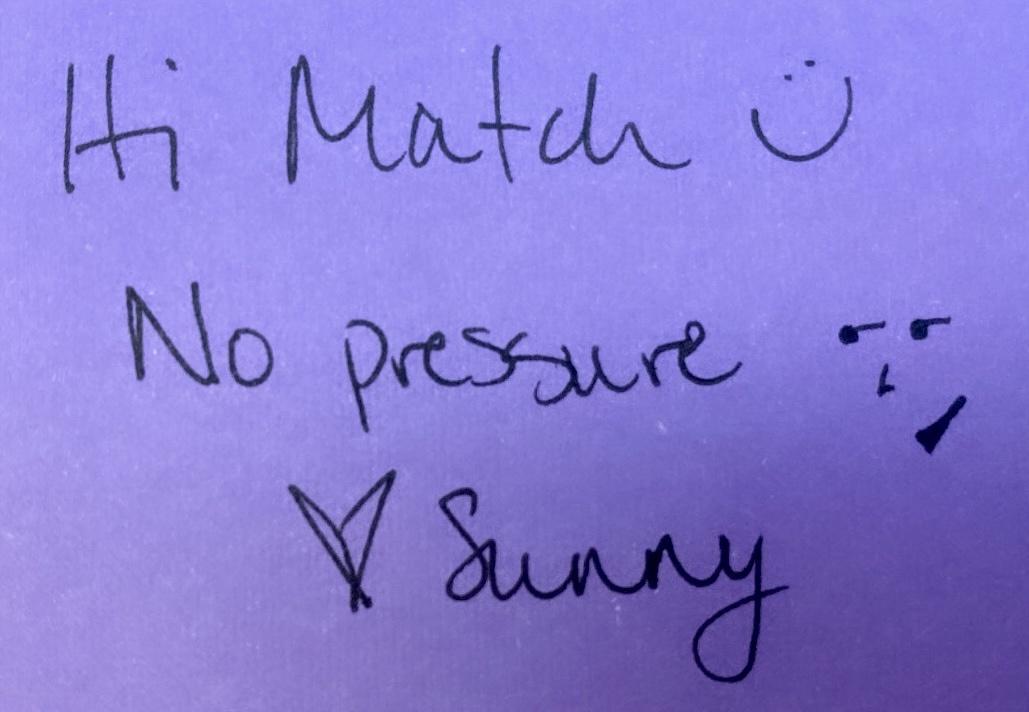 Hi Match
No pressure
Sunny